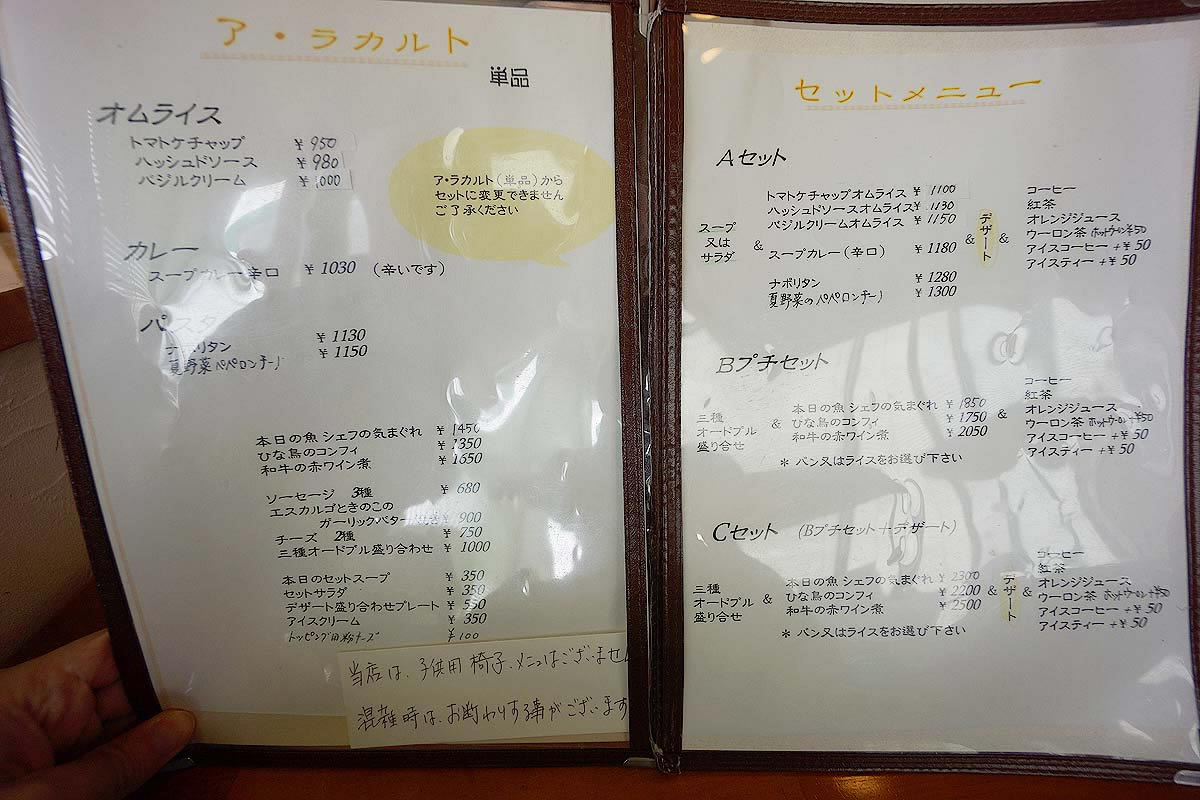 ア・ラカルト
単品
オムライス
トマトケチャップ ¥950
ハッシュドソース ¥980
バジルクリーム ¥1000
ア・ラカルト(単品)から
セットに変更できません
ご了承ください
カレー
スープカレー辛口 ¥1030 (辛いです)
パスタ
ナポリタン ¥1130
夏野菜ペペロンチーノ ¥1150
本日の魚 シェフの気まぐれ ¥1450
ひな鳥のコンフィ ¥1350
和牛の赤ワイン煮 ¥1650
ソーセージ 3種 ¥680
エスカルゴときのこの
ガーリックバター ¥900
チーズ 2種 ¥750
三種オードブル盛り合わせ ¥1000
本日のセットスープ ¥350
セットサラダ ¥350
デザート盛り合わせプレート ¥550
アイスクリーム ¥350
トッピング用粉チーズ ¥100
当店は、子供用椅子、メニュはございません
混雑時は、お断わりする事がございます
セットメニュー
Aセット
スープ
又は
サラダ
&
トマトケチャップオムライス ¥1100
ハッシュドソースオムライス ¥1130
バジルクリームオムライス ¥1150
スープカレー(辛口) ¥1180
ナポリタン ¥1280
夏野菜のペペロンチーノ ¥1300
&
デザート
&
コーヒー
紅茶
オレンジジュース
ウーロン茶 ホットウーロン¥50
アイスコーヒー +¥50
アイスティー +¥50
Bプチセット
三種
オードブル
盛り合せ
&
本日の魚 シェフの気まぐれ ¥1850
ひな鳥のコンフィ ¥1750
和牛の赤ワイン煮 ¥2050
&
コーヒー
紅茶
オレンジジュース
ウーロン茶 ホットウーロン+¥50
アイスコーヒー +¥50
アイスティー +¥50
*パン又はライスをお選び下さい
Cセット (Bプチセット+デザート)
三種
オードブル
盛り合せ
&
本日の魚 シェフの気まぐれ ¥2300
ひな鳥のコンフィ ¥2200
和牛の赤ワイン煮 ¥2500
&
デザート
&
コーヒー
紅茶
オレンジジュース
ウーロン茶 ホットウーロン+¥50
アイスコーヒー +¥50
アイスティー +¥50
*パン又はライスをお選び下さい